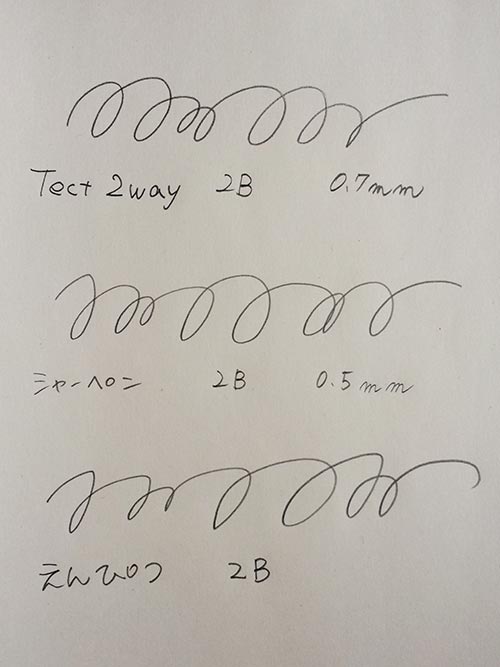 Tect 2way 2B 0.7mm
シャーペン 2B 0.5mm
えんぴつ 2B